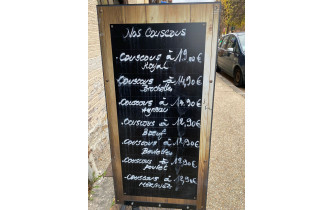 Nos Couscous
. Couscous à 19.00 €
Royal
Couscous à 14,90 €
Brochettes
. Couscous à 14.90 €
Agneau
. Couscous à 12,90 €
Boeuf
. Couscous à €
Boulettes
. Couscous à 13,90 €
Poulet
. Couscous à 13,90 €
Merguez